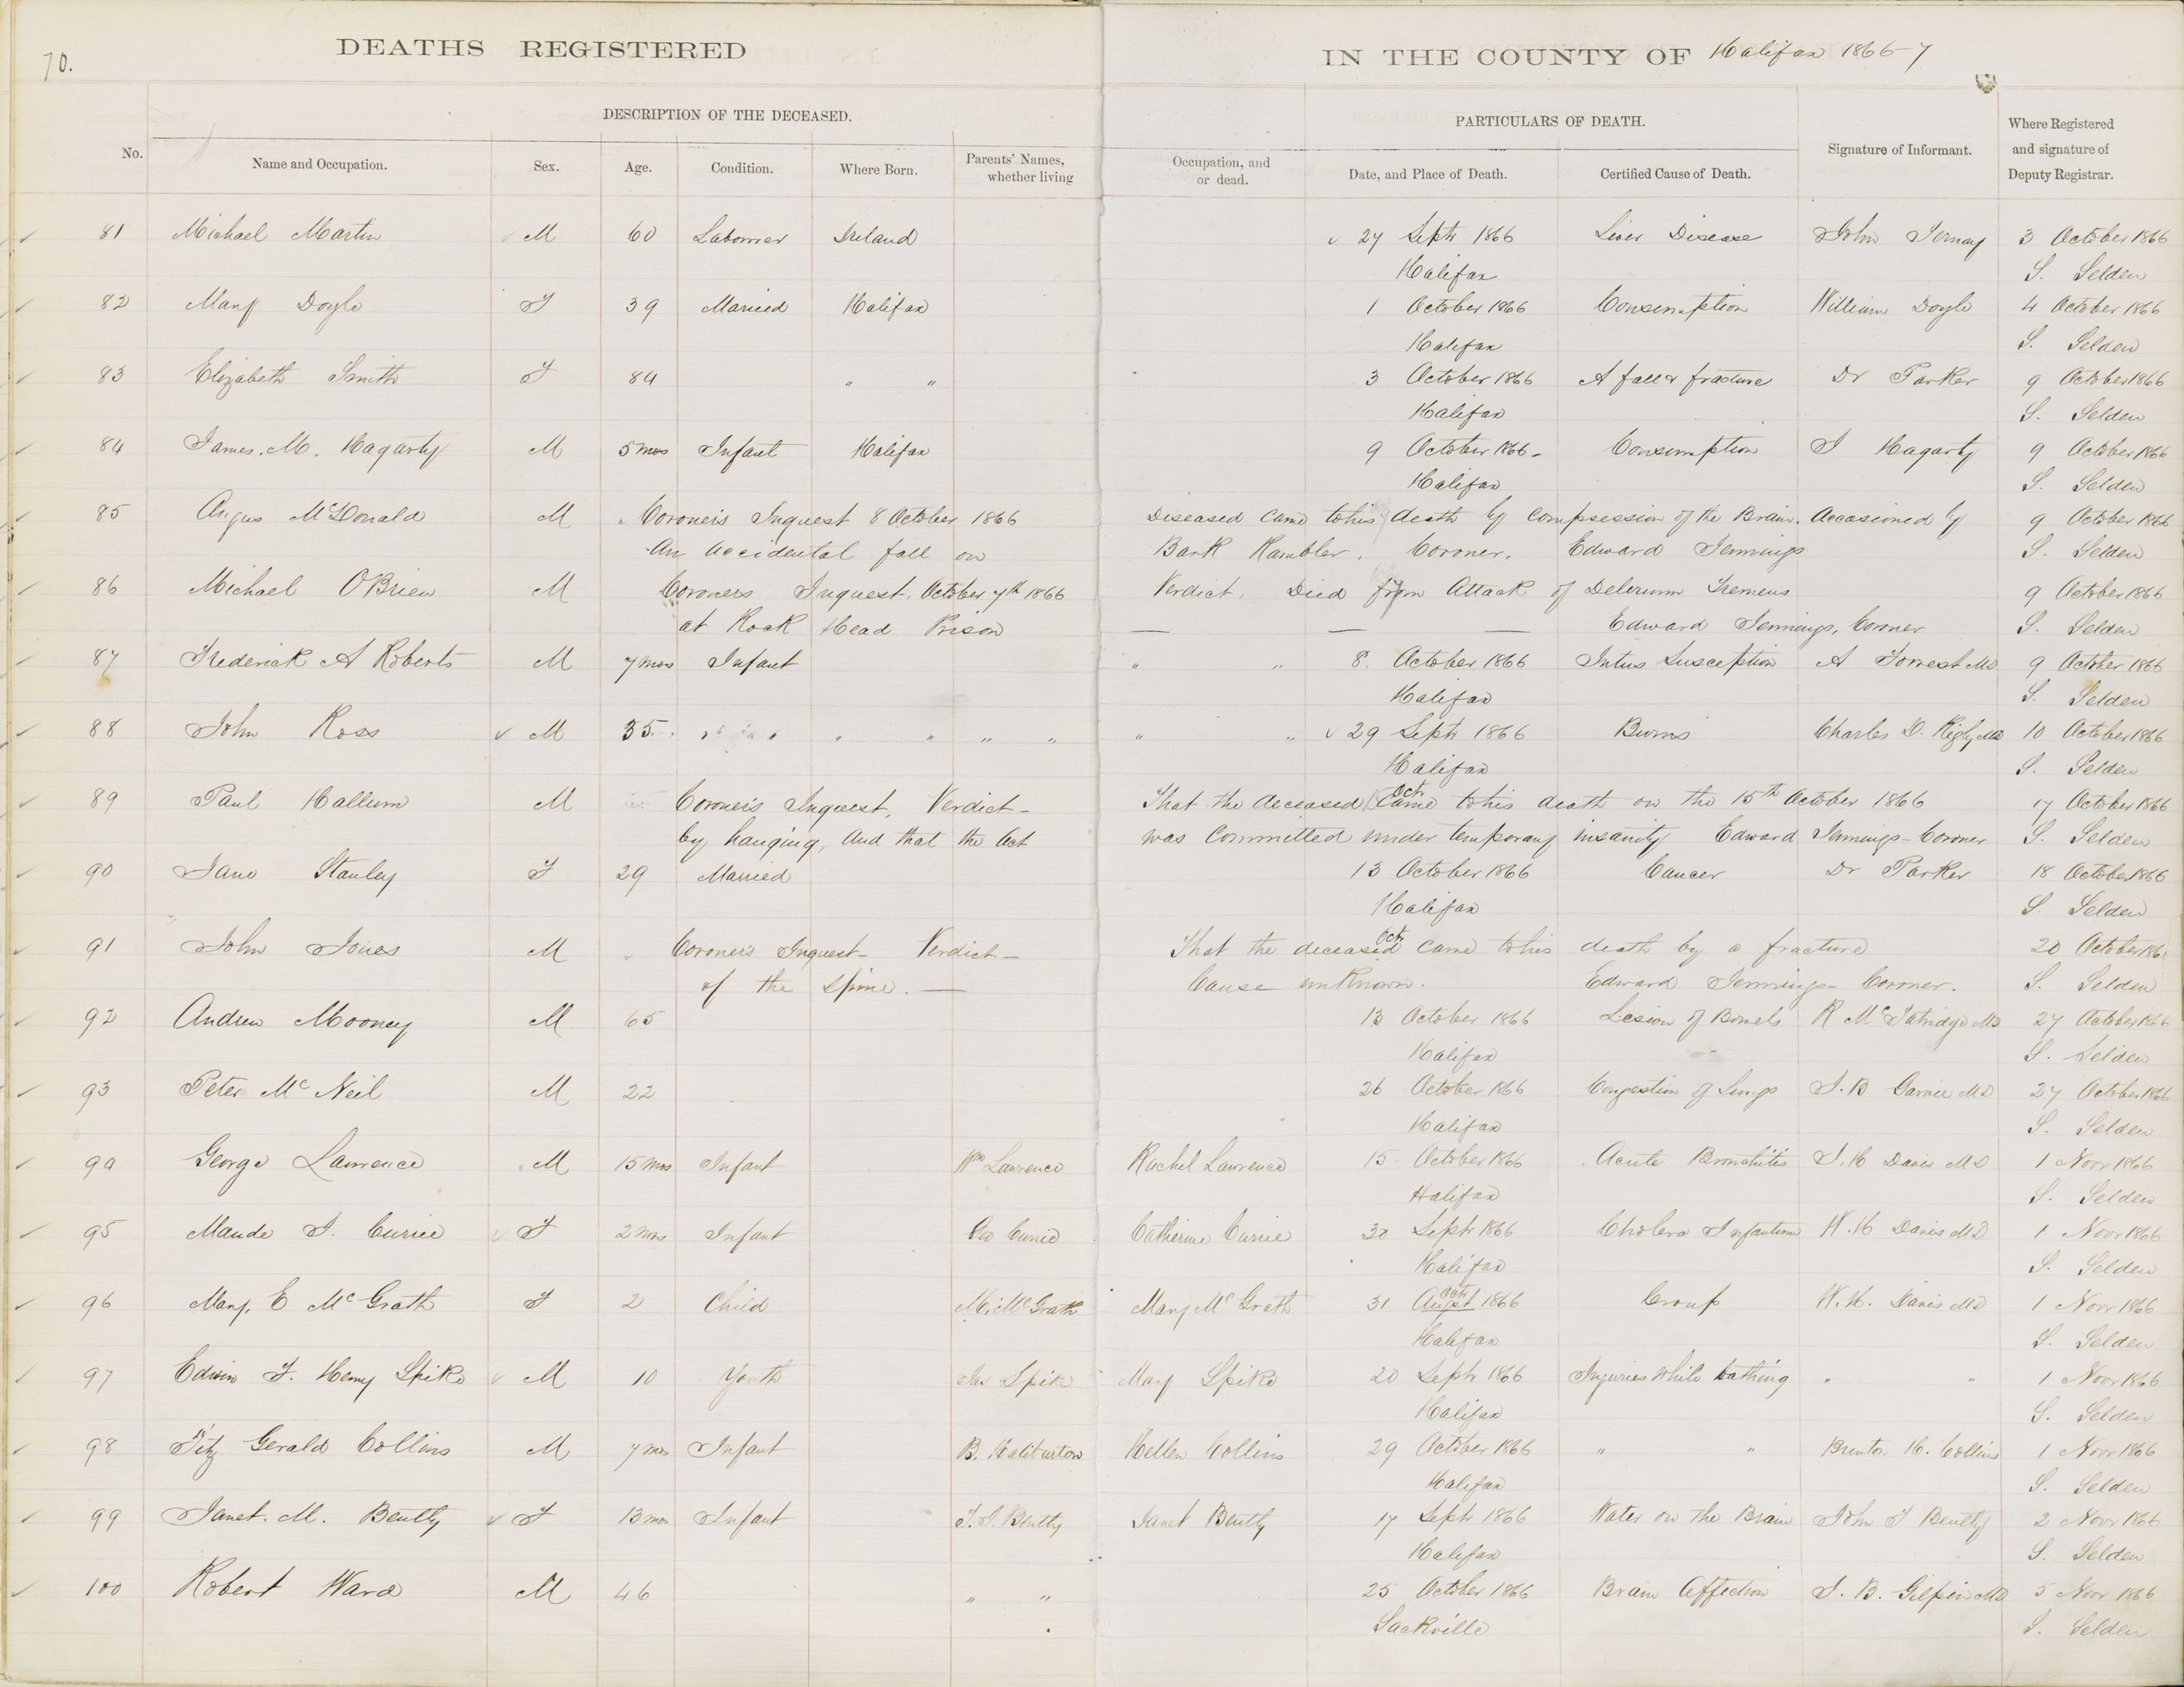 70.
DEATHS REGISTERED IN THE COUNTY OF Halifax 1866-7
DESCRIPTION OF THE DECEASED. PARTICULARS OF DEATH.
No. Name and Occupation. Sex. Age. Condition. Where Born. Parents' Names, whether living Occupation, and or dead. Date, and Place of Death. Certified Cause of Death. Signature of Informant. Where Registered and signature of Deputy Registrar.
81 Michael Martin M 60 Labourer Ireland 27 Septr 1866 Liver Disease John 3 October 1866
Halifax S. Selden
82 Mary Doyle F 39 Married Halifax 1 October 1866 Consumption William Doyle 4 October 1866
Halifax S. Selden
83 Elizabeth Smith F 84 " " 3 October 1866 A fall & fracture Dr Parker 9 October 1866
Halifax S. Selden
84 James. M. Hagarty M 5 mos Infant Halifax 9 October 1866 Consumption J Hagarty 9 October 1866
Halifax S. Selden
85 Angus McDonald M Coroner's Inquest 8 October 1866 Diseased came to his death by compression of the Brain. Accasioned by 9 October 1866
An accidental fall on Bark Rambler. Coroner. Edward Jennings S. Selden
86 Michael O'Brien M Coroners Inquest. October 7th 1866 Verdict. Died from Attack of Delerium Tremens 9 October 1866
at Rock Head Prison — — — Edward Jennings, Coroner S. Selden
87 Frederick A Roberts M 7 mos Infant " " 8. October 1866 Intus Susception A Forrest MD 9 October 1866
Halifax S. Selden
88 John Ross M 35 " " " " " " 29 Septr 1866 Burns Charles D. Rigby MD 10 October 1866
Halifax S. Selden
89 Paul Hallum M Coroner's Inquest, Verdict - That the deceased came to his death on the 15th October 1866 17 October 1866
Oct
by hanging, and that the act was committed under temporary insanity Edward Jennings - Coroner S. Selden
90 Jane Stanley F 29 Married 13 October 1866 Cancer Dr Parker 18 October 1866
Halifax S. Selden
91 John Jones M Coroner's Inquest - Verdict - That the deceased came to his death by a fracture 20 October 186
Oct
of the Spine. — Cause unknown. Edward Jennings - Coroner. S. Selden
92 Andrew Mooney M 65 13 October 1866 Lesion of Bowels R 27 October 1866
Halifax S. Selden
93 Peter McNeil M 22 26 October 1866 Congestion of Lungs J. B Garvie MD 27 October 1866
Halifax S. Selden
94 George Lawrence M 15 mos Infant Wm Lawrence Rachel Lawrence 15 October 1866 Acute Bronchitis J. H Davis MD 1 Novr 1866
Halifax S. Selden
95 Maude J. Currie F 2 mos Infant Geo Currie Catherine Currie 30 Septr 1866 Cholera Infantum W. H Davis MD 1 Novr 1866
Halifax S. Selden
96 Mary. E McGrath F 2 Child M. McGrath Mary McGrath 31 Augst 1866 Croup W. H. Davis MD 1 Novr 1866
Octr
Halifax S. Selden
97 Edwin F. Henry Spike M 10 Youth Jas Spike Mary Spike 20 Septr 1866 Injuries while bathing " " 1 Novr 1866
Halifax S. Selden
98 Fitz Gerald Collins M 7 mos Infant B. Haliburton Hellen Collins 29 October 1866 " " Brenton H. Collins 1 Novr 1866
Halifax S. Selden
99 Janet. M. Bently F 13 mos Infant J. F. Bently Janet Bently 17 Septr 1866 Water on the Brain John F Bently 2 Novr 1866
Halifax S. Selden
100 Robert Ward M 46 " " 25 October 1866 Brain Affection J. B. Gilpin MD 5 Novr 1866
Sackville S. Selden